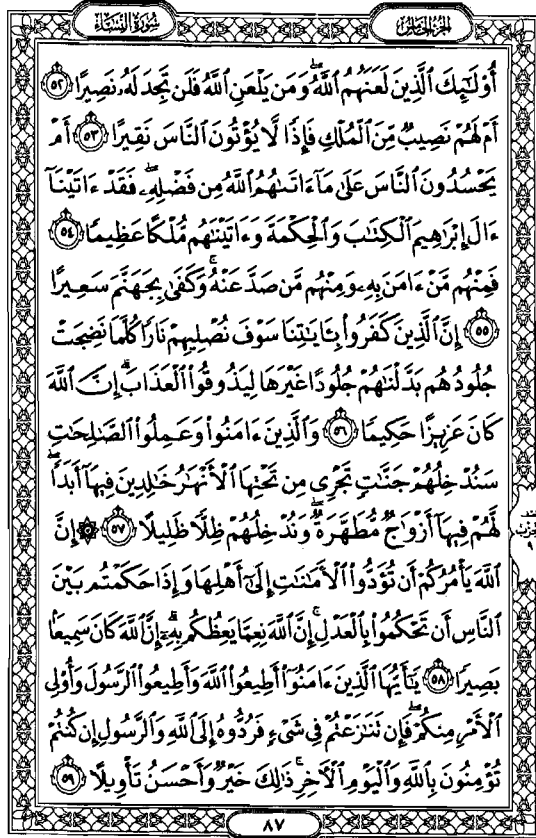 الجزء الخامس
سورة النساء
أُوْلَٰٓئِكَ ٱلَّذِينَ لَعَنَهُمُ ٱللَّهُۖ وَمَن يَلْعَنِ ٱللَّهُ فَلَن تَجِدَ لَهُۥ نَصِيرًا ٥٢
أَمْ لَهُمْ نَصِيبٌ مِّنَ ٱلْمُلْكِ فَإِذًا لَّا يُؤْتُونَ ٱلنَّاسَ نَقِيرًا ٥٣ أَمْ
يَحْسُدُونَ ٱلنَّاسَ عَلَىٰ مَآ ءَاتَىٰهُمُ ٱللَّهُ مِن فَضْلِهِۦۖ فَقَدْ ءَاتَيْنَآ
ءَالَ إِبْرَٰهِيمَ ٱلْكِتَٰبَ وَٱلْحِكْمَةَ وَءَاتَيْنَٰهُم مُّلْكًا عَظِيمًا ٥٤
فَمِنْهُم مَّنْ ءَامَنَ بِهِۦ وَمِنْهُم مَّن صَدَّ عَنْهُۚ وَكَفَىٰ بِجَهَنَّمَ سَعِيرًا
٥٥ إِنَّ ٱلَّذِينَ كَفَرُواْ بِـَٔايَٰتِنَا سَوْفَ نُصْلِيهِمْ نَارًا كُلَّمَا نَضِجَتْ
جُلُودُهُم بَدَّلْنَٰهُمْ جُلُودًا غَيْرَهَا لِيَذُوقُواْ ٱلْعَذَابَۗ إِنَّ ٱللَّهَ
كَانَ عَزِيزًا حَكِيمًا ٥٦ وَٱلَّذِينَ ءَامَنُواْ وَعَمِلُواْ ٱلصَّٰلِحَٰتِ
سَنُدْخِلُهُمْ جَنَّٰتٍ تَجْرِى مِن تَحْتِهَا ٱلْأَنْهَٰرُ خَٰلِدِينَ فِيهَآ أَبَدًاۖ
لَّهُمْ فِيهَآ أَزْوَٰجٌ مُّطَهَّرَةٌۖ وَنُدْخِلُهُمْ ظِلًّا ظَلِيلًا ٥٧ ۞ إِنَّ
ٱللَّهَ يَأْمُرُكُمْ أَن تُؤَدُّواْ ٱلْأَمَٰنَٰتِ إِلَىٰٓ أَهْلِهَا وَإِذَا حَكَمْتُم بَيْنَ
ٱلنَّاسِ أَن تَحْكُمُواْ بِٱلْعَدْلِۚ إِنَّ ٱللَّهَ نِعِمَّا يَعِظُكُم بِهِۦٓۗ إِنَّ ٱللَّهَ كَانَ سَمِيعًۢا
بَصِيرًا ٥٨ يَٰٓأَيُّهَا ٱلَّذِينَ ءَامَنُوٓاْ أَطِيعُواْ ٱللَّهَ وَأَطِيعُواْ ٱلرَّسُولَ وَأُوْلِى
ٱلْأَمْرِ مِنكُمْۖ فَإِن تَنَٰزَعْتُمْ فِى شَىْءٍ فَرُدُّوهُ إِلَى ٱللَّهِ وَٱلرَّسُولِ إِن كُنتُمْ
تُؤْمِنُونَ بِٱللَّهِ وَٱلْيَوْمِ ٱلْأَخِرِۚ ذَٰلِكَ خَيْرٌ وَأَحْسَنُ تَأْوِيلًا ٥٩
٨٧